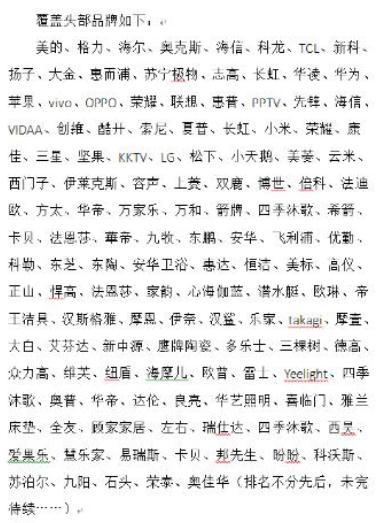 覆盖头部品牌如下：
美的、格力、海尔、奥克斯、海信、科龙、TCL、新科、
扬子、大金、惠而浦、苏宁极物、志高、长虹、华凌、华为、
苹果、vivo、OPPO、荣耀、联想、惠普、PPTV、先锋、海信、
VIDAA、创维、酷开、索尼、夏普、长虹、小米、荣耀、康
佳、三星、坚果、KKTV、LG、松下、小天鹅、美菱、云米、
西门子、伊莱克斯、容声、上菱、双鹿、博世、倍科、法迪
欧、方太、华帝、万家乐、万和、箭牌、四季沐歌、希箭、
卡贝、法恩莎、華帝、九牧、东鹏、安华、飞利浦、优勤、
科勒、东芝、东陶、安华卫浴、惠达、恒洁、美标、高仪、
正山、悍高、法恩莎、家韵、心海伽蓝、潜水艇、欧琳、帝
王洁具、汉斯格雅、摩恩、伊奈、汉鲨、乐家、takagi、摩壹、
大白、艾芬达、新中源、鹰牌陶瓷、多乐士、三棵树、德高、
众力高、维芙、纽盾、海摩儿、欧普、雷士、Yeelight、四季
沐歌、奥普、华帝、达伦、良亮、华艺照明、喜临门、雅兰
床垫、全友、顾家家居、左右、瑞仕达、四季沐歌、西昊、
爱果乐、慧乐家、易瑞斯、卡贝、邦先生、盼盼、科沃斯、
苏泊尔、九阳、石头、荣泰、奥佳华（排名不分先后，未完
待续……）